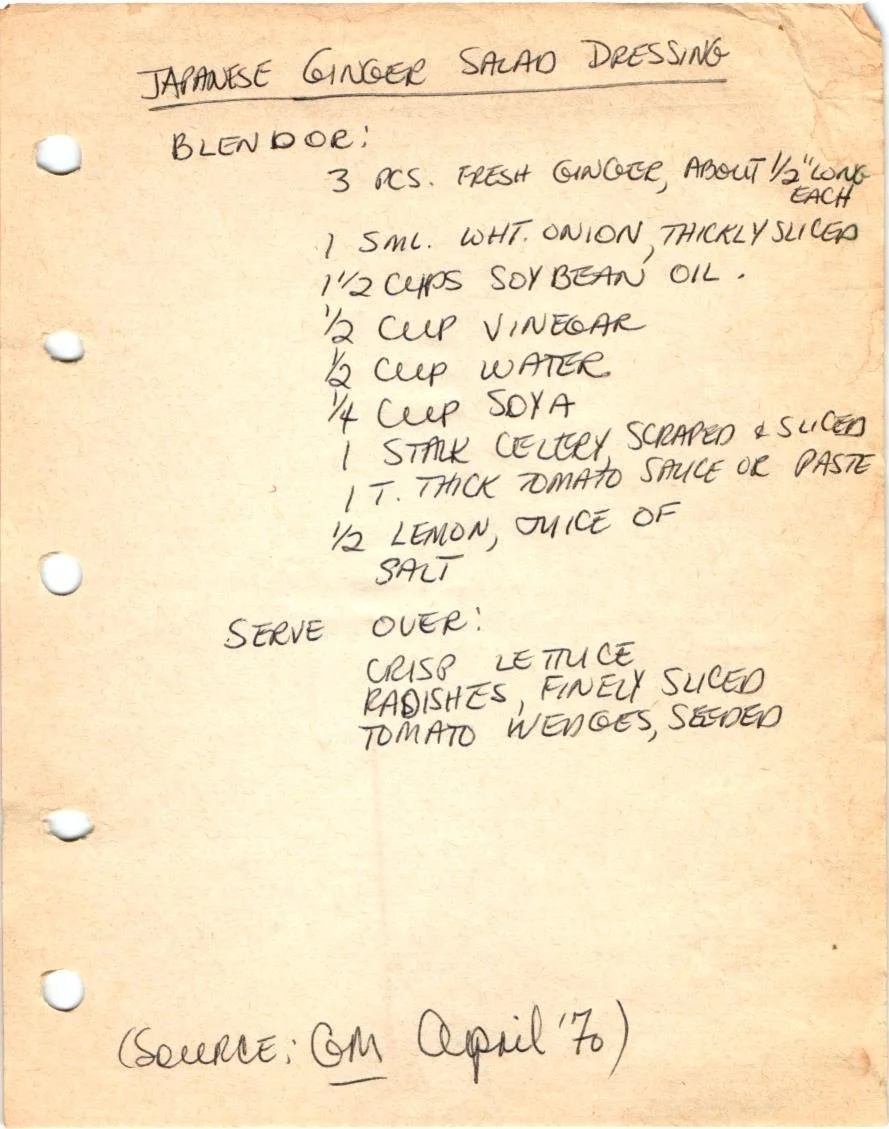 JAPANESE GINGER SALAD DRESSING
BLENDOR:
3 PCS. FRESH GINGER, ABOUT 1/2" LONG
EACH
1 SML. WHT. ONION, THICKLY SLICED
1 1/2 CUPS SOYBEAN OIL.
1/2 CUP VINEGAR
1/2 CUP WATER
1/4 CUP SOYA
1 STALK CELERY, SCRAPED & SLICED
1 T. THICK TOMATO SAUCE OR PASTE
1/2 LEMON, JUICE OF
SALT
SERVE OVER:
CRISP LETTUCE
RADISHES, FINELY SLICED
TOMATO WEDGES, SEEDED
(SOURCE: GM April '70)